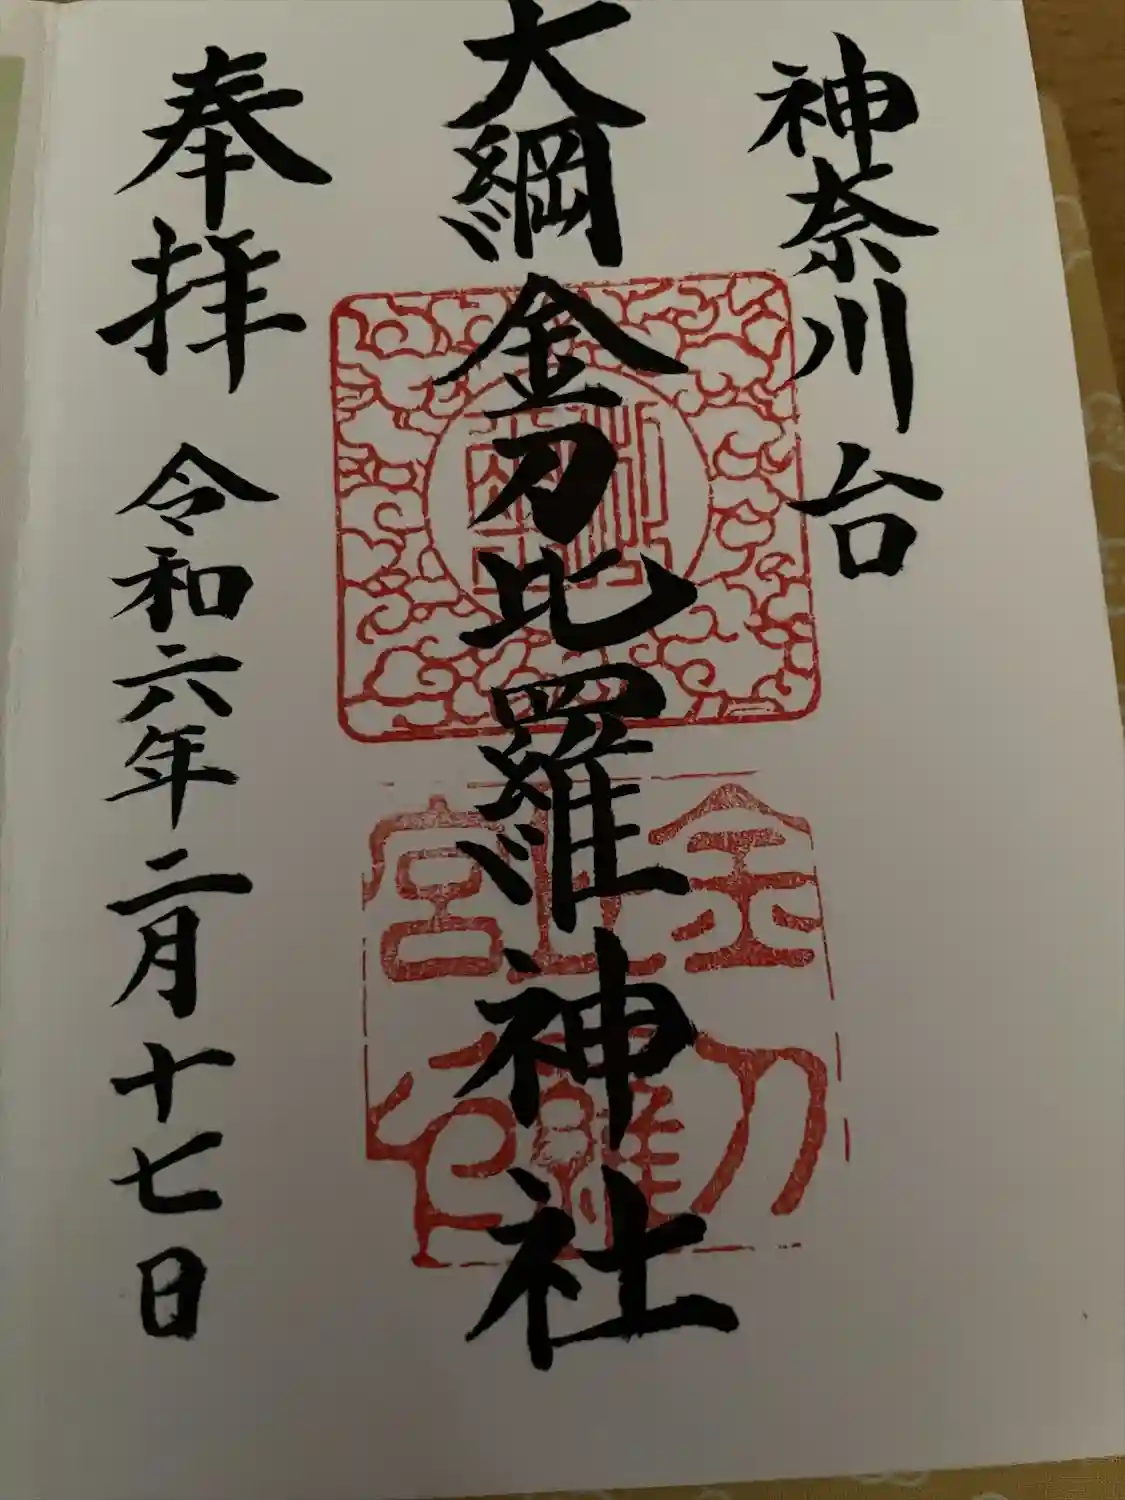 神奈川台
大綱金刀比羅神社
奉拝 令和六年二月十七日